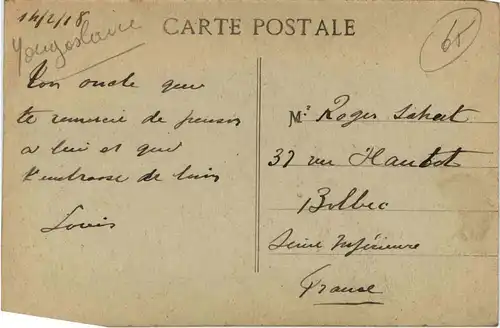 14/2/18
Yougoslavie
CARTE POSTALE
65
Ton oncle que
te remercie de penser
a lui et que
t'embrasse de loin
Louis
Mr Roger
37 rue Hautot
Bolbec
Seine Inférieure
France